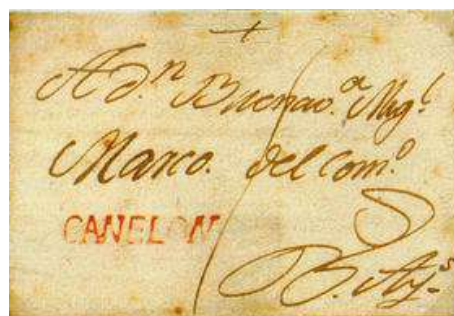 +
A D.n Buenav.a Mig.l
Marco. del Com.o
CANELON
B. Ay.s